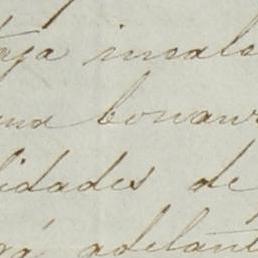 taja incalc
una bonanz
lidades de
rá adelant